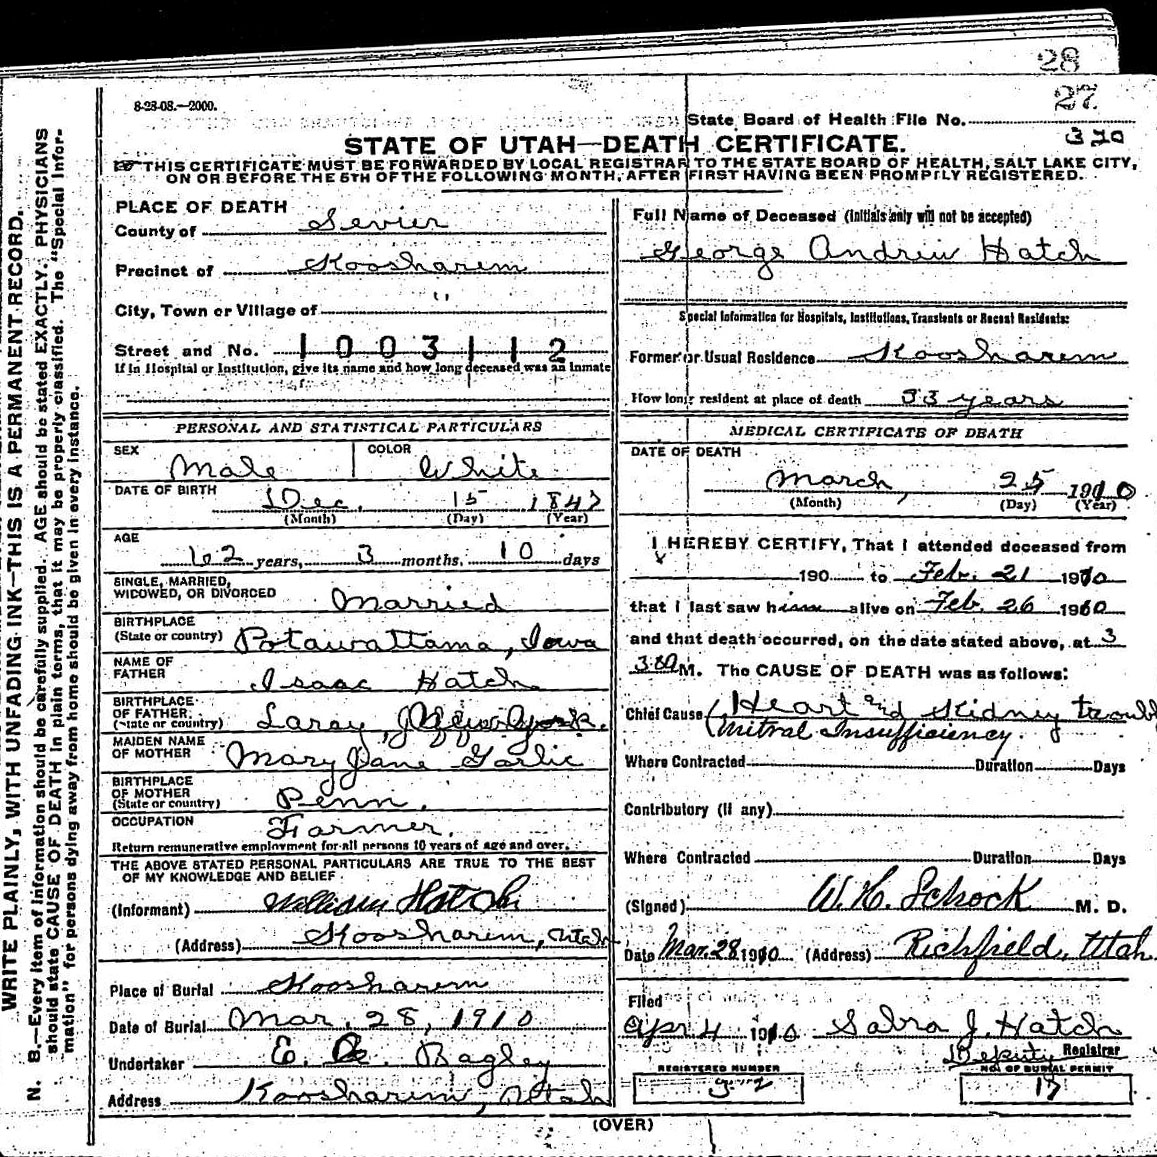 28
27
8-28-08.—2000.
State Board of Health File No.
320
STATE OF UTAH—DEATH CERTIFICATE.
THIS CERTIFICATE MUST BE FORWARDED BY LOCAL REGISTRAR TO THE STATE BOARD OF HEALTH, SALT LAKE CITY,
ON OR BEFORE THE 5TH OF THE FOLLOWING MONTH, AFTER FIRST HAVING BEEN PROMPTLY REGISTERED.
WRITE PLAINLY, WITH UNFADING INK—THIS IS A PERMANENT RECORD.
N. B.—Every item of information should be carefully supplied. AGE should be stated EXACTLY. PHYSICIANS
should state CAUSE OF DEATH in plain terms, that it may be properly classified. The "Special Infor-
mation" for persons dying away from home should be given in every instance.
PLACE OF DEATH
County of Sevier
Precinct of Koosharem
City, Town or Village of "
Street and No. 1003112
If in Hospital or Institution, give its name and how long deceased was an inmate
PERSONAL AND STATISTICAL PARTICULARS
SEX Male COLOR White
DATE OF BIRTH Dec. 15 1847
(Month) (Day) (Year)
AGE 62 years, 3 months, 10 days
SINGLE, MARRIED,
WIDOWED, OR DIVORCED Married
BIRTHPLACE
(State or country) Potawattama, Iowa
NAME OF
FATHER Isaac Hatch
BIRTHPLACE
OF FATHER,
(State or country) Laray, York.
MAIDEN NAME
OF MOTHER Mary Jane Garlic
BIRTHPLACE
OF MOTHER
(State or country) Penn.
OCCUPATION Farmer.
Return remunerative employment for all persons 10 years of age and over.
THE ABOVE STATED PERSONAL PARTICULARS ARE TRUE TO THE BEST
OF MY KNOWLEDGE AND BELIEF
(Informant) William Hatch
(Address) Koosharem, Utah
Place of Burial Koosharem
Date of Burial Mar. 28, 1910
Undertaker E. Bagley
Address Koosharem, Utah
Full Name of Deceased (Initials only will not be accepted)
George Andrew Hatch
Special Information for Hospitals, Institutions, Transients or Recent Residents:
Former or Usual Residence Koosharem
How long resident at place of death 33 years
MEDICAL CERTIFICATE OF DEATH
DATE OF DEATH
March, 25 1910
(Month) (Day) (Year)
I HEREBY CERTIFY, That I attended deceased from
190 to Feb. 21 1910
that I last saw him alive on Feb. 26 1910
and that death occurred, on the date stated above, at 3
3:00 M. The CAUSE OF DEATH was as follows:
Chief Cause Heart and Kidney trouble
Mitral Insufficiency.
Where Contracted Duration Days
Contributory (if any)
Where Contracted Duration Days
(Signed) W. H. Schock M. D.
Date Mar. 28 1910 (Address) Richfield, Utah
Filed
Apr 4 1910 Sabra J. Hatch
Deputy Registrar
REGISTERED NUMBER NO. OF BURIAL PERMIT
17
(OVER)